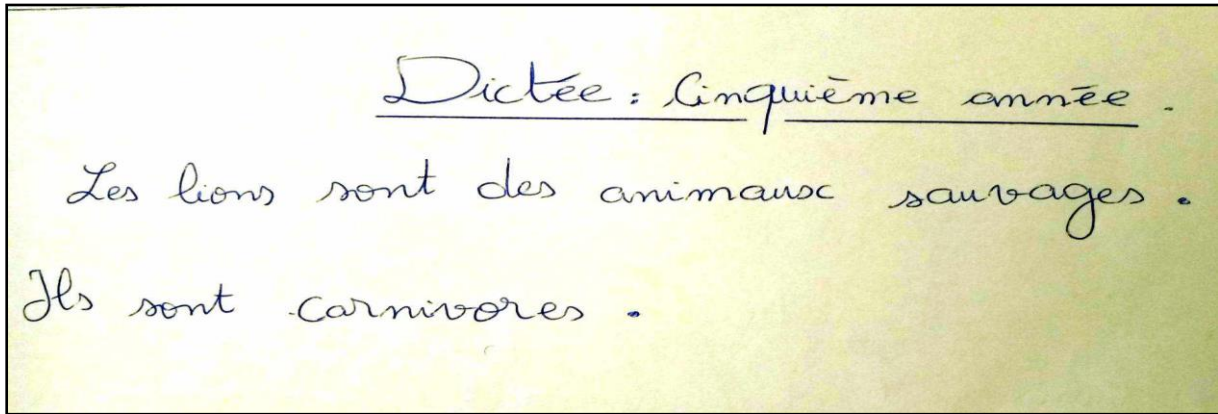 Dictée : Cinquième année.
Les lions sont des animaux sauvages.
Ils sont carnivores.